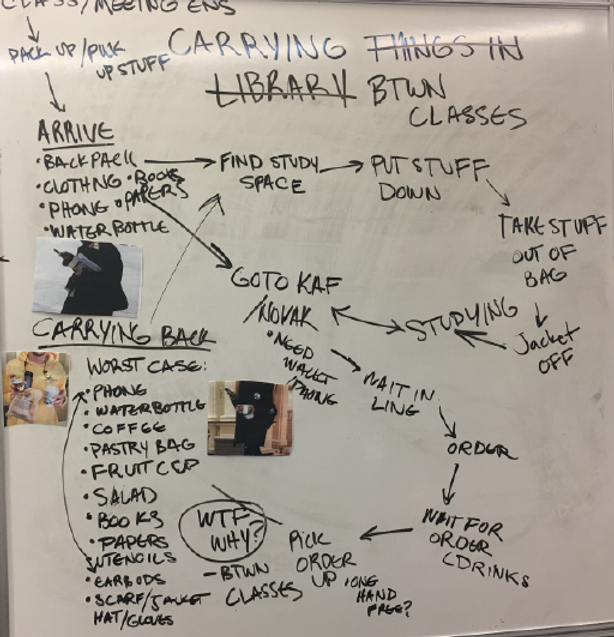 CLASS/MEETING ENS
PACK UP/PICK
UP STUFF
CARRYING THINGS IN
LIBRARY BTWN
CLASSES
ARRIVE
• BACKPACK
• CLOTHNG • BOOKS
• PHONG • PAPERS
• WATER BOTTLE
FIND STUDY
SPACE
PUT STUFF
DOWN
TAKE STUFF
OUT OF
BAG
Jacket
OFF
STUDYING
GO TO KAF
/NOVAK
• NEED
WALLET
/PHONG
WAIT IN
LING
ORDER
WAIT FOR
ORDER
(DRINKS
PICK
ORDER
UP
1 ONG
HAND
FREE?
CARRYING BACK
WORST CASE:
• PHONG
• WATERBOTTLE
• COFFEE
• PASTRY BAG
• FRUIT CUP
• SALAD
• BOOKS
• PAPERS
UTENCILS
• EARBODS
• SCARF/JACKET
HAT/GLOVES
WTF
WHY?
- BTWN
CLASSES